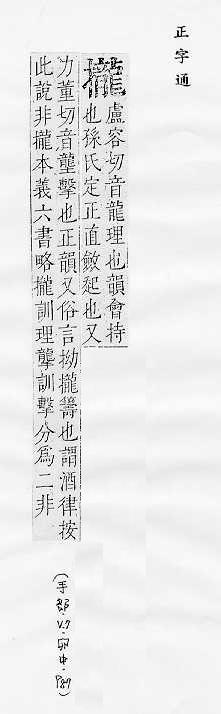 正字通
攏
盧容切音龍理也韻會持
也孫氏定正直斂起也又
力董切音壟擊也正韻又俗言拗攏籌也謂酒律按
此說非攏本義六書略攏訓理㰍訓擊分爲二非
(手部·V.7·卯中·P.87)